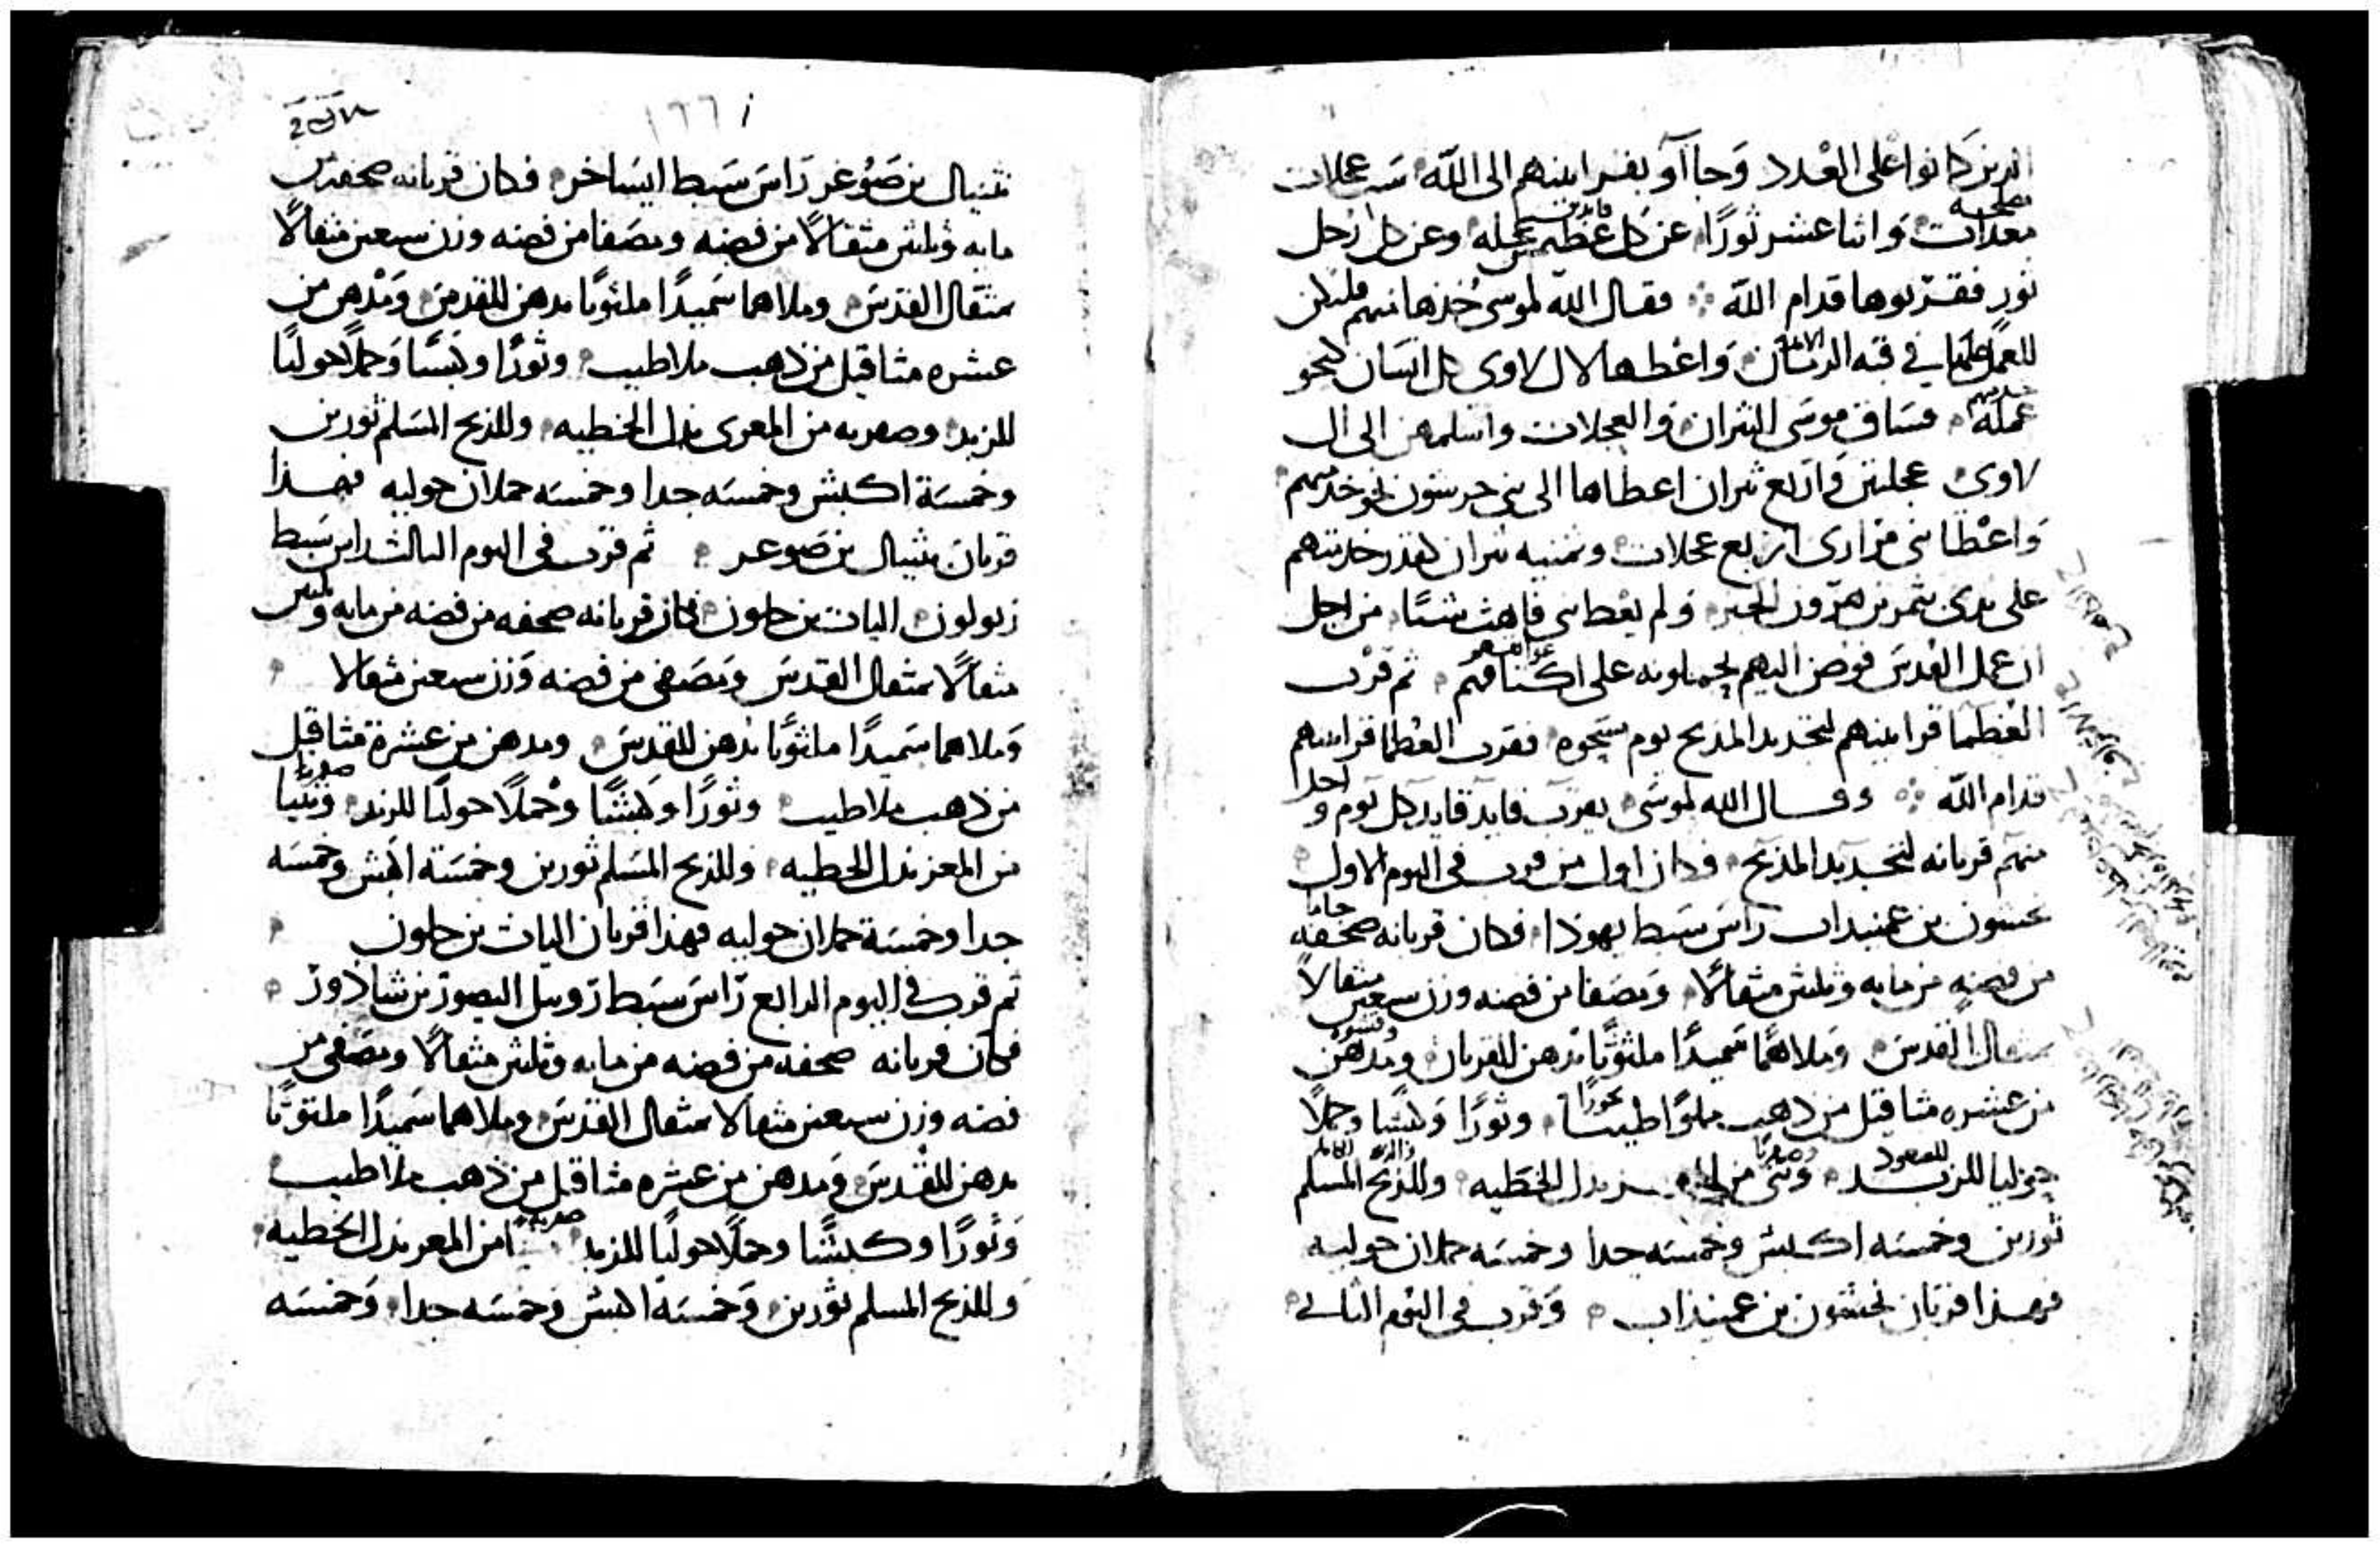 الذين كانوا على العدد وجاآو بقرابينهم الى الله ست عجلات
مصلحه
معدات واثنا عشر ثورًا عن كل عظيمين عجله وعن كل رجل
ثور فقربوها قدام الله فقال الله لموسى خذها منهم فلتكن
للعمل في قبه الزمان واعطها لال لاوى كل انسان كنحو
عمله فساق موسى الثيران والعجلات واسلمهن الى ال
لاوى عجلتين واربع ثيران اعطاها الى بنى جرشون نحو خدمتهم
واعطا بنى مرارى اربع عجلات وثمنيه ثيران كقدر خدمتهم
على يدى ثمر بن هرون الحبر ولم يعطا بنى قاهث شيا من اجل
ان عمل القدس فوض اليهم يحملونه على اكتافهم ثم قرب
العظما قرابينهم لتجديد المذبح يوم مسحوه فقرب العظما قرابينهم
قدام الله وقال الله لموسى يقرب قايد قايد كل يوم واحدا
منهم قربانه لتجديد المذبح فكان اول من قرب فى اليوم الاول
نحشون بن عميناداب راس سبط يهوذا فكان قربانه صحفه
من فضه من مايه وثلثين مثقالًا ومصفا من فضه وزن سبعين مثقالًا
بمثقال القدس وملاهما سميدًا ملتوتًا بدهن للقربان ومدهن
من عشره مثاقيل من ذهب مملوًا طيبًا وثورًا وكبشًا وحملًا
حوليا للزبد وثنى من المعز بدل الخطيه وللذبح المسلم
ثورين وخمسه اكبش وخمسه جدا وخمسه حملان حوليه
فهذا قربان نحشون بن عميناداب وقرب فى اليوم الثانى
١٦٦
نثنيال بن صوغر راس سبط ايساخر فكان قربانه صحفه من
مايه وثلثين مثقالًا من فضه ومصفا من فضه وزن سبعين مثقالًا
بمثقال القدس وملاهما سميدًا ملتوتًا بدهن للقدس ومدهن من
عشره مثاقيل من ذهب ملا طيب وثورًا وكبشًا وحملًا حوليًا
للزبد وصفريه من المعزى بدل الخطيه وللذبح المسلم ثورين
وخمسة اكبش وخمسه جدا وخمسه حملان حوليه فهذا
قربان نثنيال بن صوعر ثم قرب فى اليوم الثالث راس سبط
زبولون الياب بن حلون فكان قربانه صحفه من فضه من مايه وثلثين
مثقالًا بمثقال القدس ومصفى من فضه وزن سبعين مثقالا
وملاهما سميدًا ملتوتًا بدهن للقدس ومدهن من عشرة مثاقيل
من ذهب ملا طيب وثورًا وكبشًا وحملًا حوليًا للزبد وثنيا
من المعز بدل الخطيه وللذبح المسلم ثورين وخمسة اكبش وخمسه
جدا وخمسة حملان حوليه فهذا قربان الياب بن حلون
ثم قرب فى اليوم الرابع راس سبط روبيل اليصور بن شادور
فكان قربانه صحفه من فضه من مايه وثلثين مثقالًا ومصفى من
فضه وزن سبعين مثقالا بمثقال القدس وملاهما سميدًا ملتوتًا
بدهن للقدس ومدهن من عشره مثاقيل من ذهب ملا طيب
وثورًا وكبشًا وحملًا حوليًا للزبد من المعز بدل الخطيه
وللذبح المسلم ثورين وخمسه اكبش وخمسه جدا وخمسه